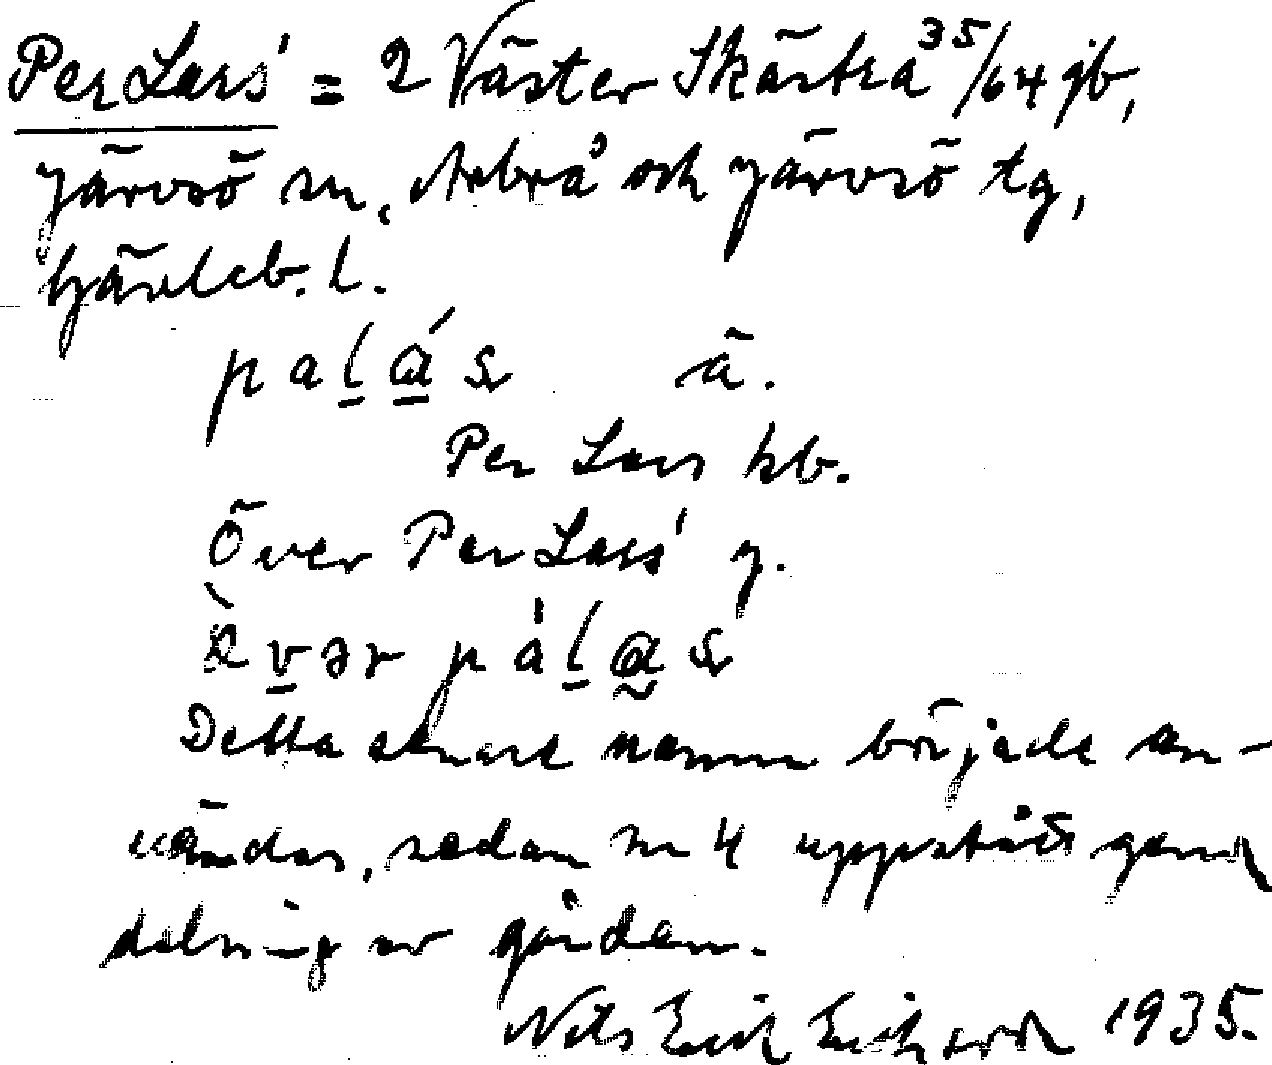 Per Lars' = 2 Väster Skästra 35/64 jb,
Järvsö sn, Arbrå och Järvsö tg,
Gävleb. l.
pal̲á̲s ä.
Per Lars kb.
Över Per Lars' y.
ɵ̀v̲ər pàl̲a̰s
Detta senare namn började an-
vändas, sedan nr 4 uppstått genom
delning av gården.
Nils Erik Eriksson 1935.